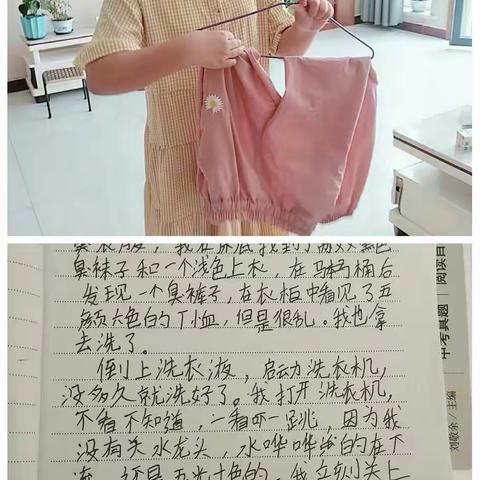 臭衣服，我在床底找到了两双黑色
臭袜子和一个浅色上衣，在马桶后
发现一个臭裤子，在衣柜中看见了五
颜六色的T恤，但是很乱。我也拿
去洗了。
倒上洗衣液，启动洗衣机，
没多久就洗好了。我打开洗衣机，
不看不知道，一看吓一跳，因为我
没有关水龙头，水哗哗的在下
流，还是五光十色的，我立刻关上
中考真题 阅读目
刘敬余/主编